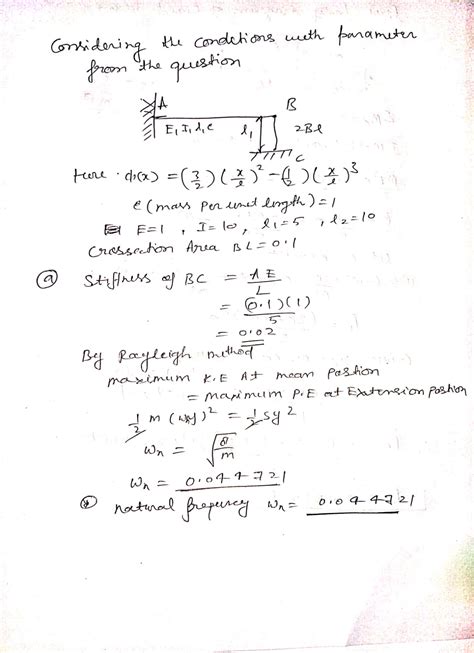 Considering the conditions with parameter
from the question
A
B
E, I, l, e
l1
2Bl
C
Here · d1(x) = (3/2) (x/l)^2 - (1/2) (x/l)^3
e (mass per unit length) = 1
E=1 , I=10, l1=5 , l2=10
Crossection Area BL=0.1
(a) Stiffness of BC = AE/L
= (0.1)(1)/5
= 0.02
By Rayleigh method
maximum K.E At mean position
= maximum P.E at Extension position
1/2 m (wy)^2 = 1/2 sy^2
Wn =
m
Wn = 0.044721
natural frequency Wn = 0.044721